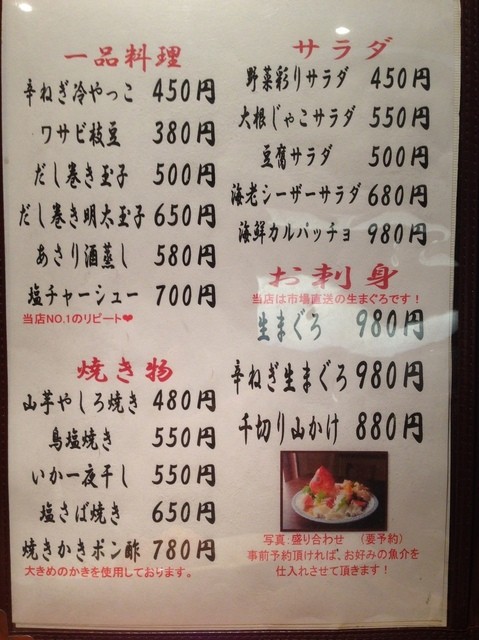 一品料理
辛ねぎ冷やっこ 450円
ワサビ枝豆 380円
だし巻き玉子 500円
だし巻き明太玉子 650円
あさり酒蒸し 580円
塩チャーシュー 700円
当店NO.1のリピート❤
焼き物
山芋やしろ焼き 480円
鳥塩焼き 550円
いか一夜干し 550円
塩さば焼き 650円
焼きかきポン酢 780円
大きめのかきを使用しております。
サラダ
野菜彩りサラダ 450円
大根じゃこサラダ 550円
豆腐サラダ 500円
海老シーザーサラダ 680円
海鮮カルパッチョ 980円
お刺身
当店は市場直送の生まぐろです！
生まぐろ 980円
辛ねぎ生まぐろ 980円
千切り山かけ 880円
写真：盛り合わせ （要予約）
事前予約頂ければ、お好みの魚介を
仕入れさせて頂きます！